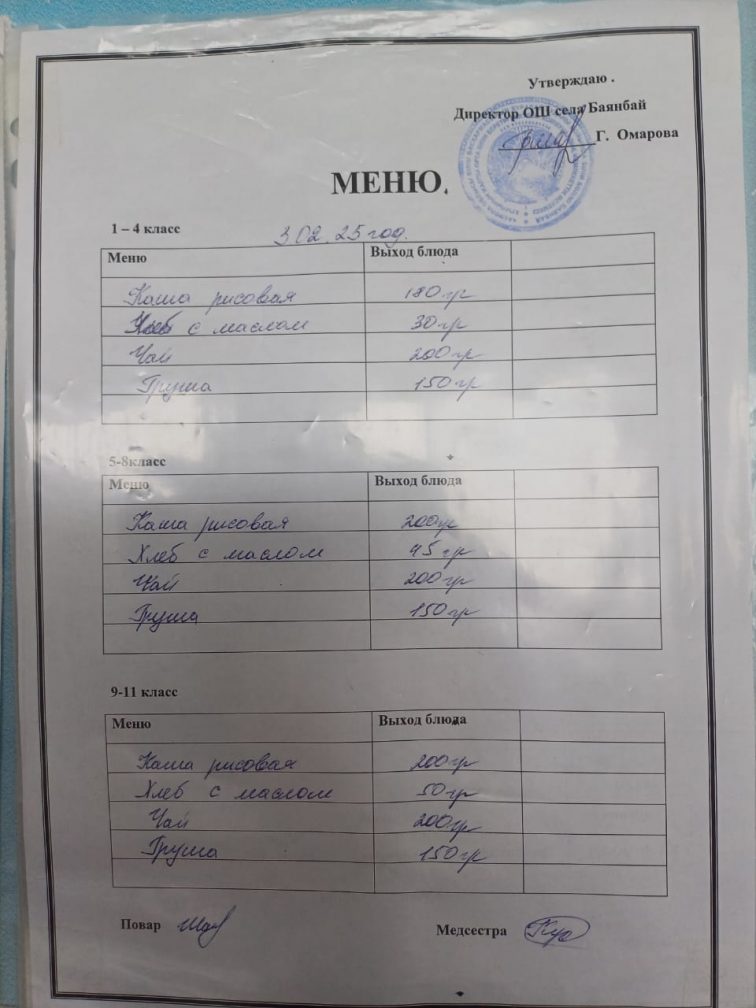 Утверждаю .
Директор ОШ села Баянбай
Г. Омарова
МЕНЮ.
1 – 4 класс
3.02.25 год.
Меню Выход блюда
Каша рисовая 180 гр
Хлеб с маслом 30 гр
Чай 200 гр
Груша 150 гр
5-8класс
Меню Выход блюда
Каша рисовая 200 гр
Хлеб с маслом 45 гр
Чай 200 гр
Груша 150 гр
9-11 класс
Меню Выход блюда
Каша рисовая 200 гр
Хлеб с маслом 50 гр
Чай 200 гр
Груша 150 гр
Повар
Медсестра